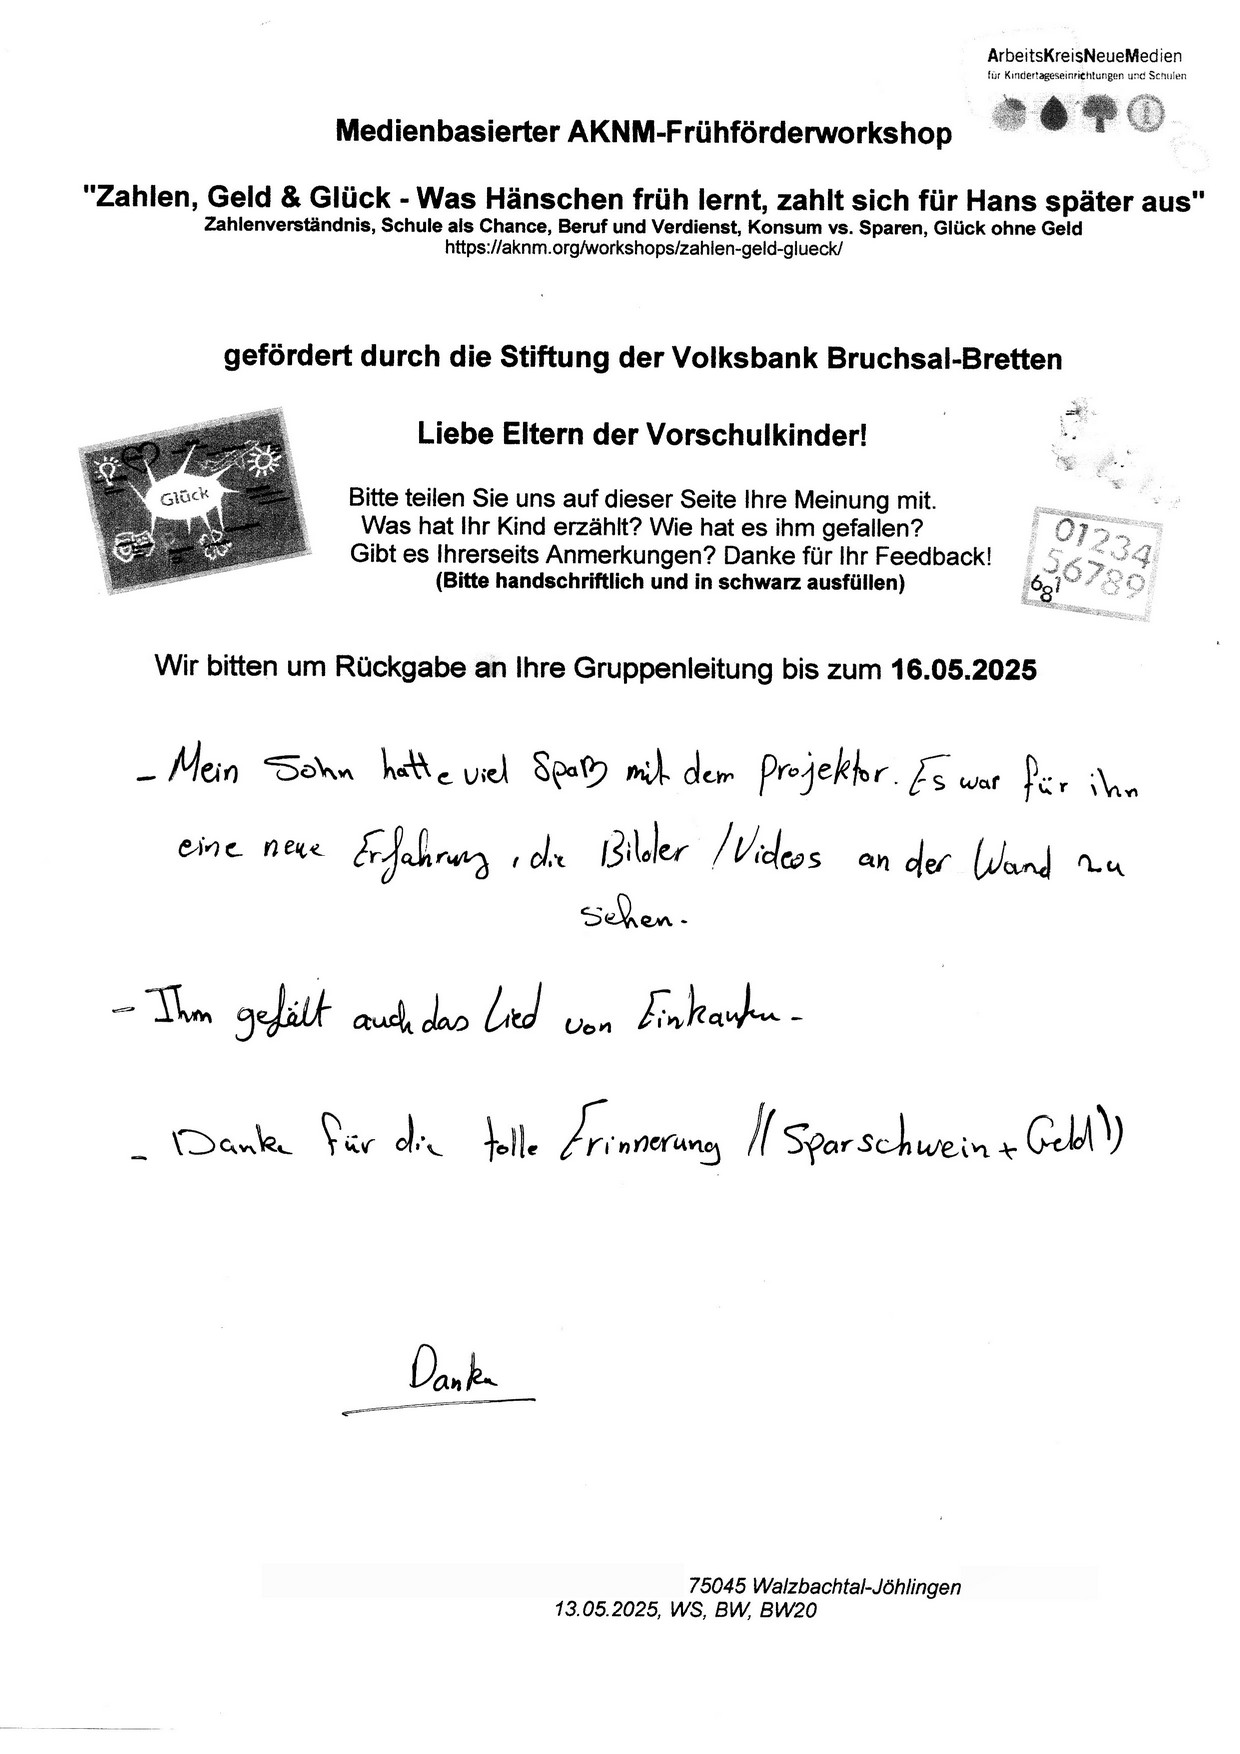 ArbeitsKreisNeueMedien
für Kindertageseinrichtungen und Schulen
Medienbasierter AKNM-Frühförderworkshop
"Zahlen, Geld & Glück - Was Hänschen früh lernt, zahlt sich für Hans später aus"
Zahlenverständnis, Schule als Chance, Beruf und Verdienst, Konsum vs. Sparen, Glück ohne Geld
https://aknm.org/workshops/zahlen-geld-glueck/
gefördert durch die Stiftung der Volksbank Bruchsal-Bretten
Liebe Eltern der Vorschulkinder!
Glück
Bitte teilen Sie uns auf dieser Seite Ihre Meinung mit.
Was hat Ihr Kind erzählt? Wie hat es ihm gefallen?
Gibt es Ihrerseits Anmerkungen? Danke für Ihr Feedback!
(Bitte handschriftlich und in schwarz ausfüllen)
01234
56789
681
Wir bitten um Rückgabe an Ihre Gruppenleitung bis zum 16.05.2025
- Mein Sohn hatte viel Spaß mit dem Projektor. Es war für ihn
eine neue Erfahrung, die Bilder / Videos an der Wand zu
sehen.
- Ihm gefält auch das Lied von Einkaufen.
- Danke für die tolle Erinnerung !! (Sparschwein + Geld !!)
Danke
75045 Walzbachtal-Jöhlingen
13.05.2025, WS, BW, BW20